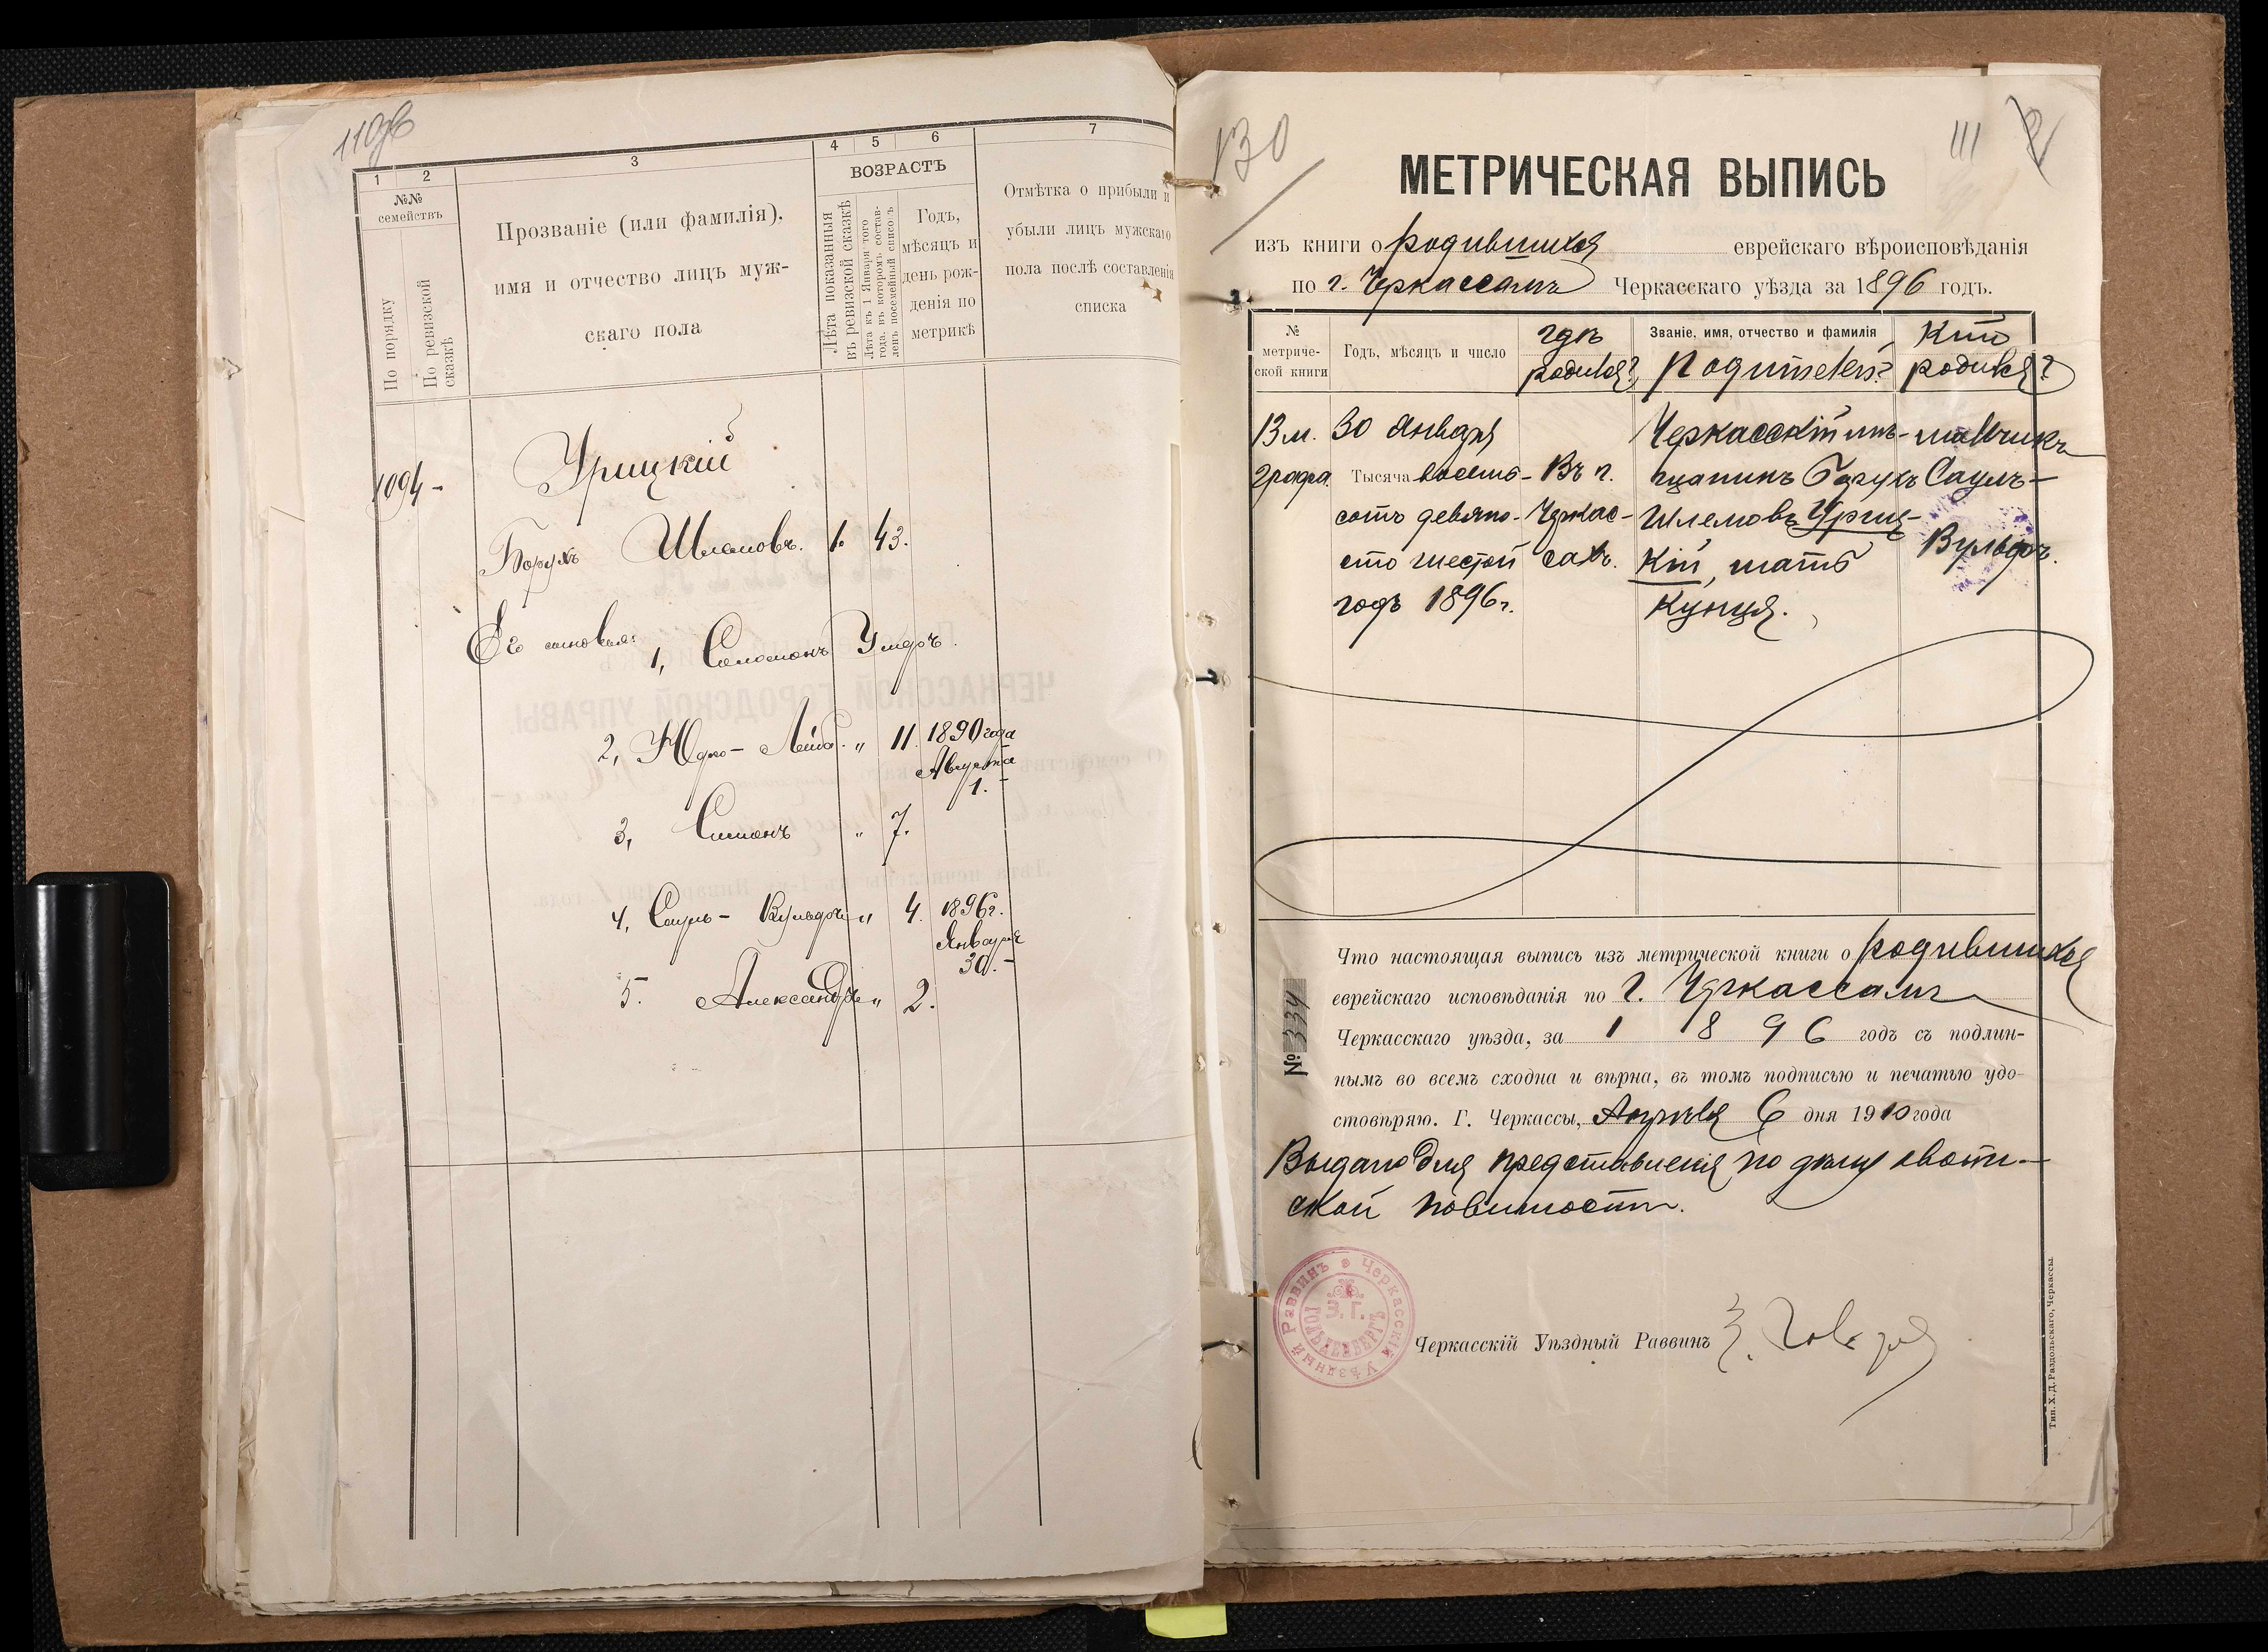 110об
1 2 3 4 5 6 7
№№ семействъ
По порядку
По ревизской сказкѣ
Прозваніе (или фамилія),
имя и отчество лицъ муж-
скаго пола
ВОЗРАСТЪ
Лѣта показанныя въ ревизской сказкѣ
Лѣта къ 1 Января того года, въ которомъ составленъ посемейный списокъ
Годъ,
мѣсяцъ и
день рож-
денія по
метрикѣ
Отмѣтка о прибыли и
убыли лицъ мужскаго
пола послѣ составленія
списка
1094 -
Урицкій
Борухъ Шлемовъ. 1. 43.
Его сыновья:
1, Соломонъ Умеръ.
2, Юдко-Лейб. „ 11. 1890 года
Августа
1.-
3, Симонъ „ 7.
4, Сауль-Вульфъ „ 4. 1896г.
Января
30.-
5. Александръ „ 2.
130
111
2
МЕТРИЧЕСКАЯ ВЫПИСЬ
изъ книги о родившихся еврейскаго вѣроисповѣданія
по г. Черкассамъ Черкасскаго уѣзда за 1896 годъ.
№ метриче-ской книги
Годъ, мѣсяцъ и число
гдѣ родился?
Званіе, имя, отчество и фамилія родителей?
Кто родился?
13 м. 30 Января Черкасскій мѣ- мальчикъ
графа. Тысяча восемь- Въ г. щанинъ Борухъ Сауль-
сотъ девяно- Черкас- Шлемовъ Уриц- Вульфъ.
сто шестой сахъ. кій, мать
годъ 1896г. Кунця.
Что настоящая выпись изъ метрической книги о родившихся
еврейскаго исповѣданія по г. Черкассамъ
Черкасскаго уѣзда, за 1896 годъ съ подлин-
нымъ во всемъ сходна и вѣрна, въ томъ подписью и печатью удо-
стовѣряю. Г. Черкассы, Апрѣля 6 дня 1910 года
№ 334
Выдано для представленія по дѣлу
повинности.
Черкасскій Уѣздный Раввинъ
Черкасскій Уѣздный Раввинъ
З. Г.
Тип. Х. Д. Раздольскаго, Черкассы